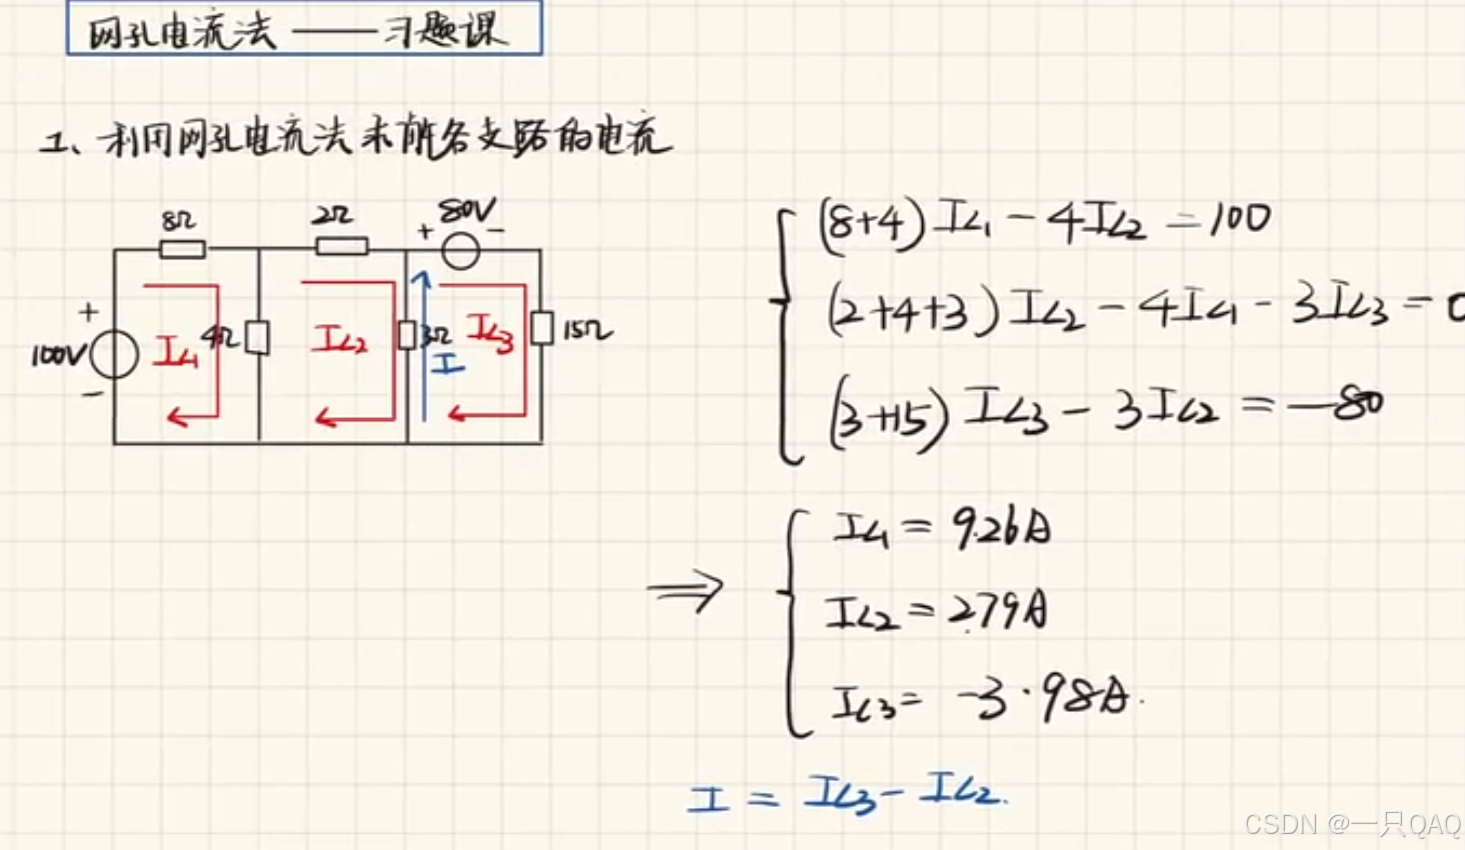 网孔电流法——习题课
1、利用网孔电流法求解各支路的电流
8Ω 2Ω + 80V -
+ 100V - IL1 4Ω IL2 3Ω I IL3 15Ω
(8+4)IL1 - 4IL2 = 100
(2+4+3)IL2 - 4IL1 - 3IL3 = 0
(3+15)IL3 - 3IL2 = -80
⇒
IL1 = 9.26A
IL2 = 2.79A
IL3 = -3.98A.
I = IL3 - IL2.
CSDN @一只QAQ